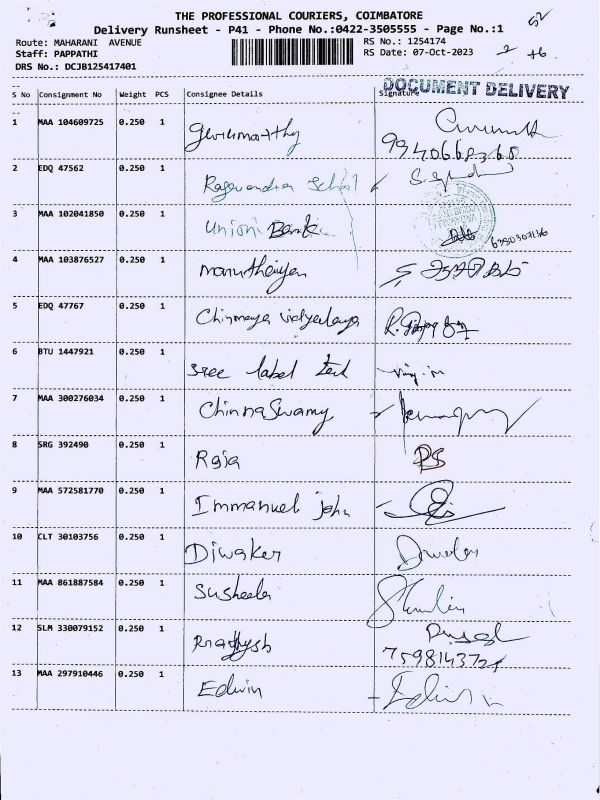 THE PROFESSIONAL COURIERS, COIMBATORE
52
Delivery Runsheet - P41 - Phone No.:0422-3505555 - Page No.:1
Route: MAHARANI AVENUE
RS No.: 1254174
Staff: PAPPATHI
RS Date: 07-Oct-2023
DRS No.: DCJB125417401
DOCUMENT DELIVERY
S No Consignment No Weight PCS Consignee Details Signature
1 MAA 104609725 0.250 1
9940668368
2 EDQ 47562 0.250 1 Ragavendra School
3 MAA 102041850 0.250 1 Union Bank
4 MAA 103876527 0.250 1
5 EDQ 47767 0.250 1 Chinmaya vidyalaya
6 BTU 1447921 0.250 1 sree label tech
7 MAA 300276034 0.250 1 ChinnaSwamy
8 SRG 392490 0.250 1 Raja
9 MAA 572581770 0.250 1 Immanuel john
10 CLT 30103756 0.250 1 Diwaker
11 MAA 861887584 0.250 1 Susheela
12 SLM 330079152 0.250 1
13 MAA 297910446 0.250 1 Edwin Edwin